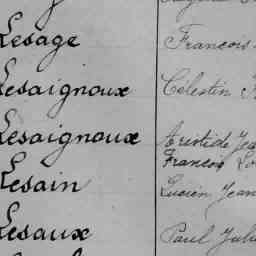 Lesage François
Lesaignoux Célestin
Lesaignoux Aristide Jean
François
Lesain Lucien Jean
Lesaux Paul Jules